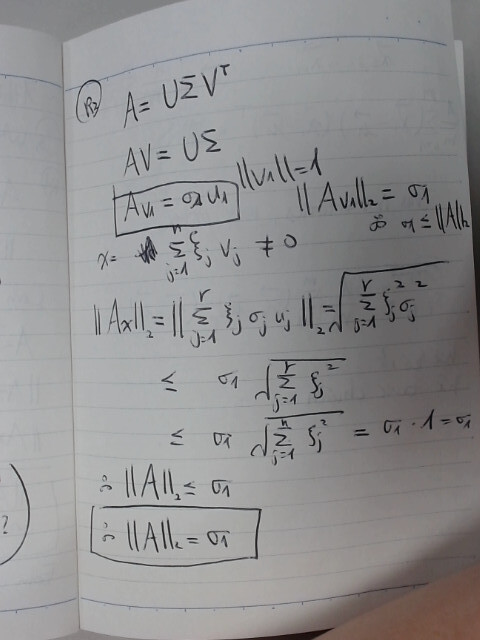 P3
A = UΣVᵀ
AV = UΣ
Av₁ = σ₁u₁ ||v₁|| = 1 ||Av₁||₂ = σ₁
∞ σ₁ ≤ ||A||₂
x = Σⁿⱼ₌₁ ξⱼ vⱼ ≠ 0
||Ax||₂ = ||Σʳⱼ₌₁ ξⱼ σⱼ uⱼ||₂ = √(Σʳⱼ₌₁ ξⱼ² σⱼ²)
≤ σ₁ √(Σʳⱼ₌₁ ξⱼ²)
≤ σ₁ √(Σⁿⱼ₌₁ ξⱼ²) = σ₁ · 1 = σ₁
∴ ||A||₂ ≤ σ₁
∴ ||A||₂ = σ₁
?